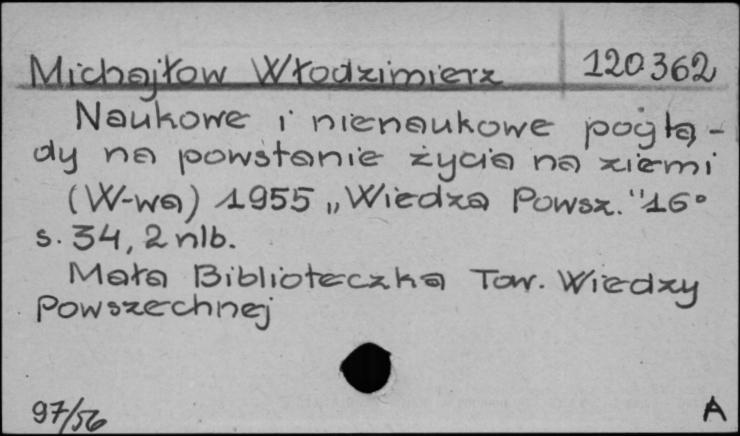 Michajłow Włodzimierz 120362
Naukowe i nienaukowe poglą-
dy na powstanie życia na ziemi
(W-wa) 1955 „Wiedza Powsz." 16°
s. 34, 2 nlb.
Mała Biblioteczka Tow. Wiedzy
Powszechnej
97/56 A